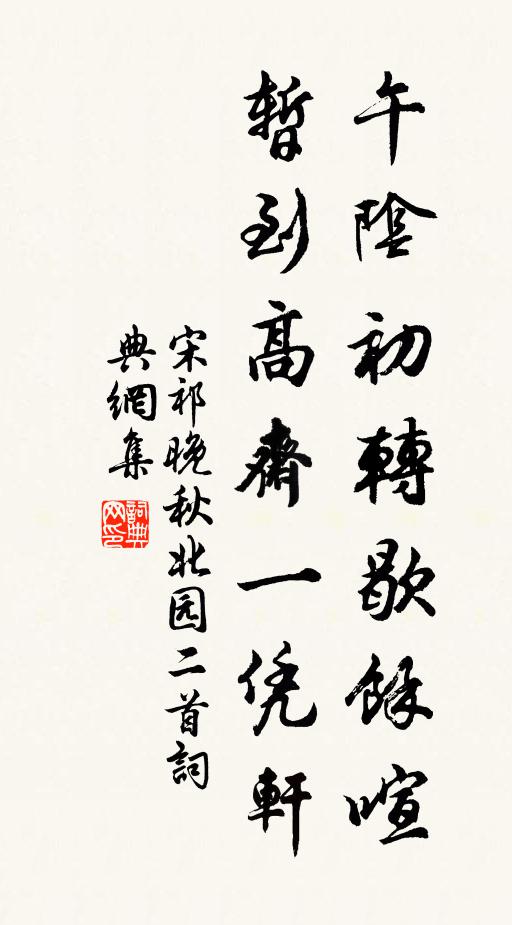 午陰初轉歇餘喧
暫到高齋一凭軒
宋祁晚秋北园二首詞
典網集
詞典
网印